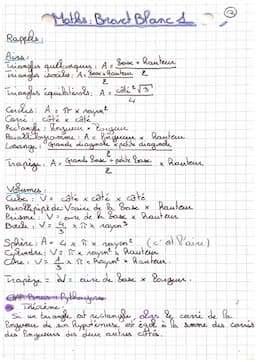 Maths : Brevet Blanc 1
Rappels :
Aires :
Triangle quelconque : A = Base × Hauteur / 2
Triangle isocèle : A = Base × Hauteur / 2
Triangle équilatéral : A = côté² √3 / 4
Cercles : A = π × rayon²
Carré : côté × côté
Rectangle : longueur × largeur
Parallélogramme : A = longueur × Hauteur
Losange : Grande diagonale × petite diagonale / 2
Trapèze : A = Grande Base + petite Base / 2 × Hauteur
Volumes :
Cube : V = côté × côté × côté
Parallélépipède : V = aire de la Base × Hauteur
Prisme : V = aire de la Base × Hauteur
Boule : V = 4/3 × π × rayon³
Sphère : A = 4 × π × rayon² (c'est l'aire)
Cylindre : V = π × rayon² × Hauteur
Cône : V = 1/3 × π × Rayon² × Hauteur.
Trapèze = V = aire de base × longueur.
Pythagore
Théorème
Si un triangle est rectangle, alors le carré de la
longueur de son hypoténuse est égale à la somme des carrés
des longueurs des deux autres côtés.